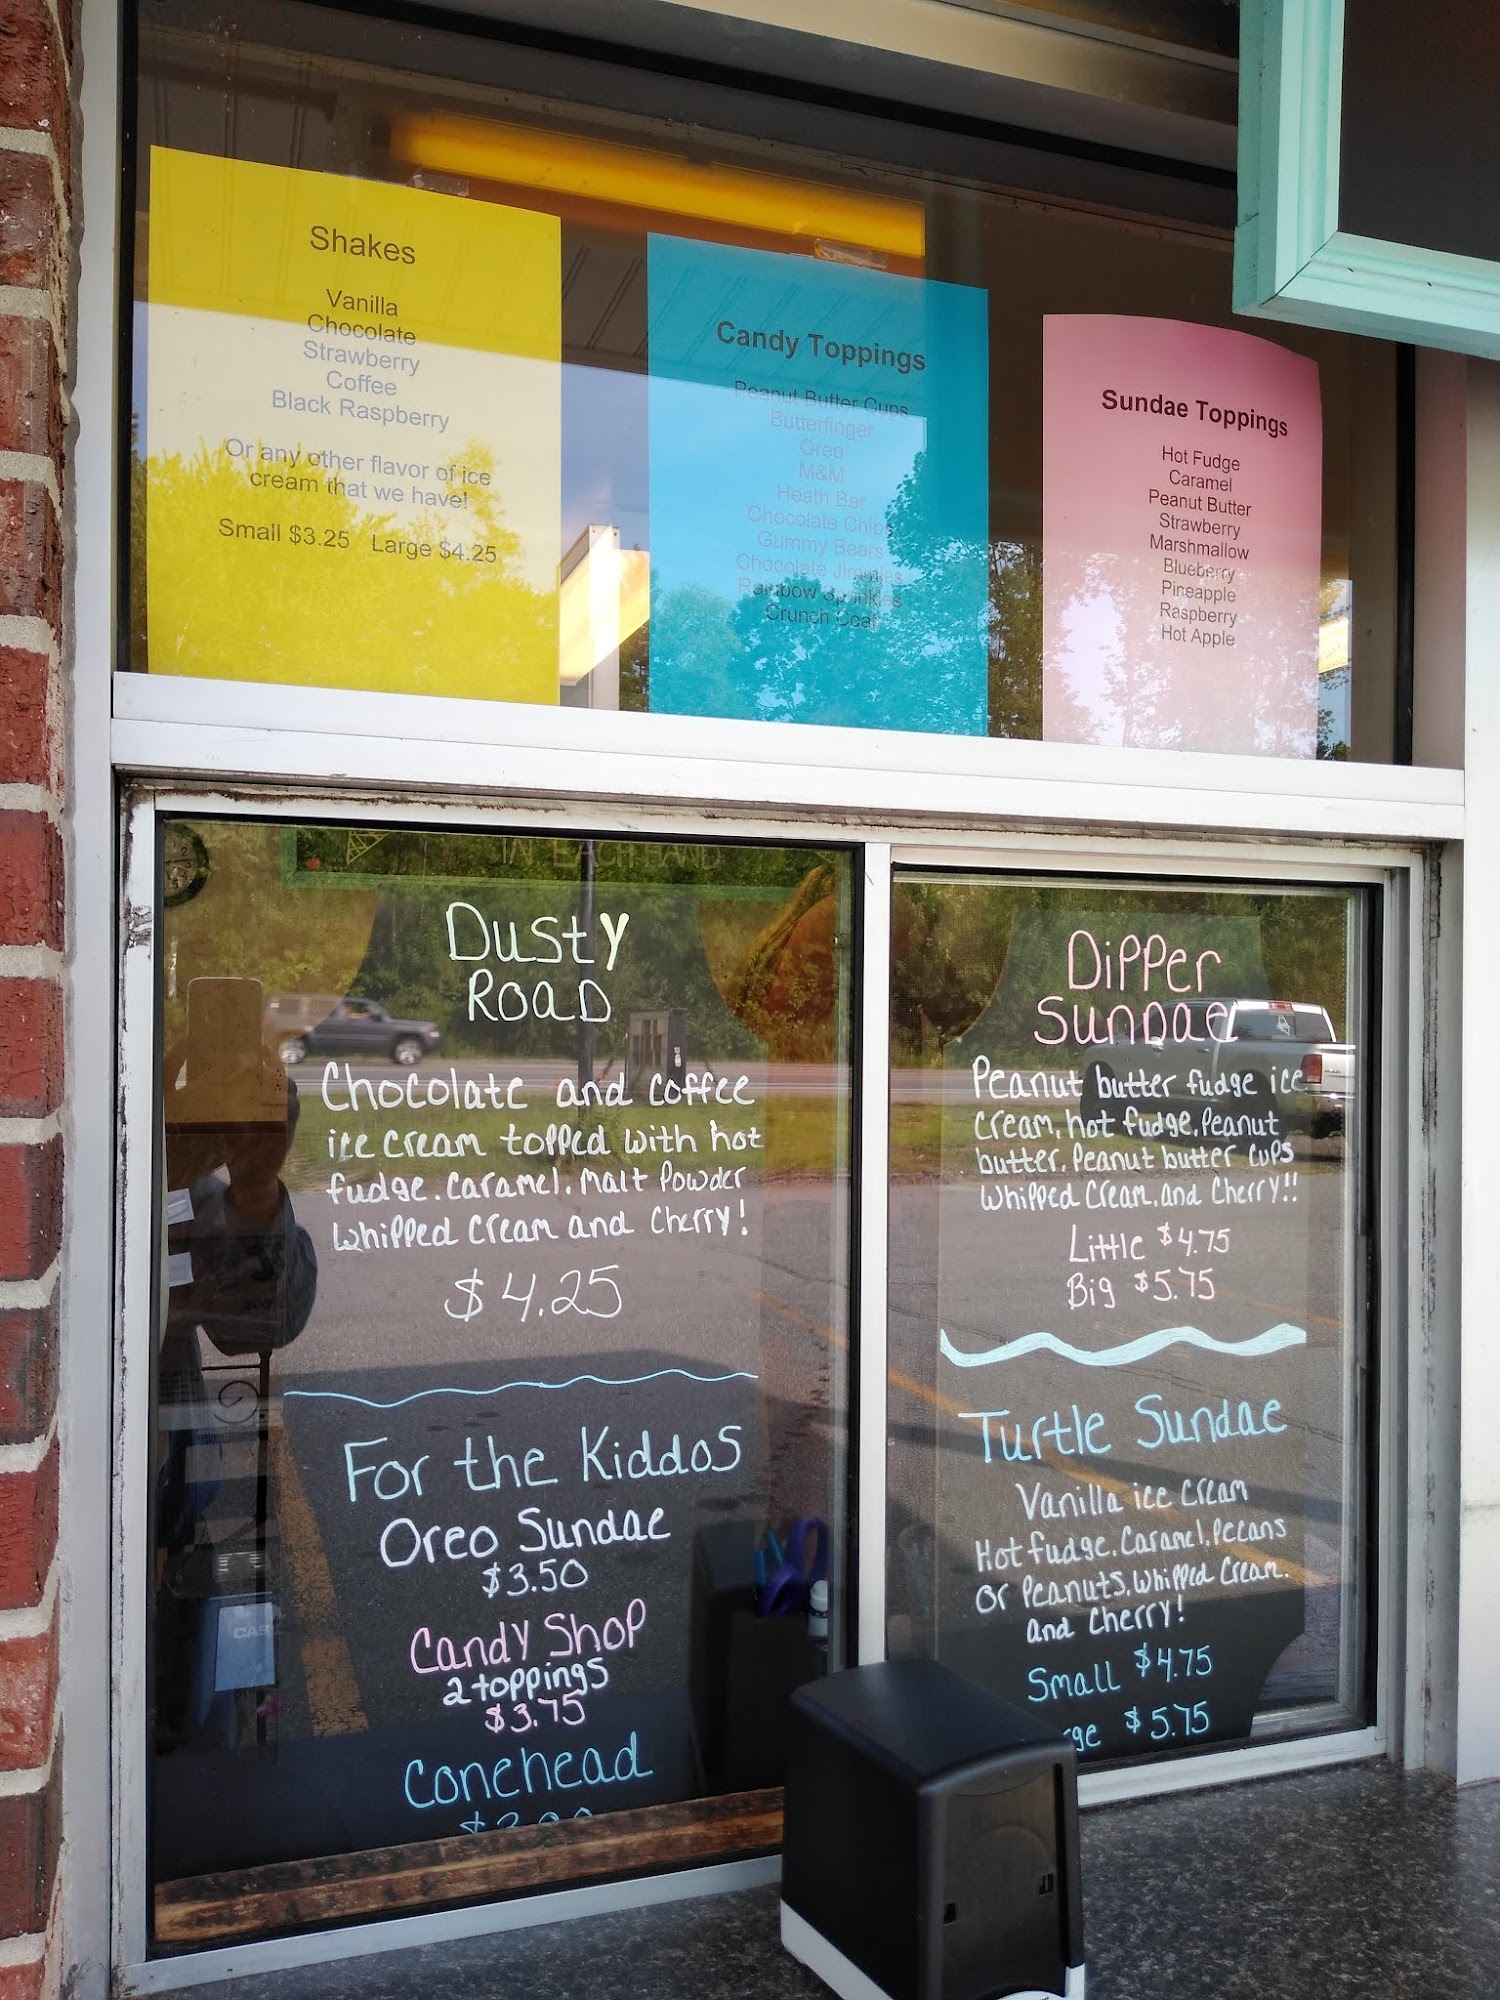 Shakes
Vanilla
Chocolate
Strawberry
Coffee
Black Raspberry
Or any other flavor of ice
cream that we have!
Small $3.25 Large $4.25
Candy Toppings
Peanut Butter Cups
Butterfinger
Oreo
M&M
Heath Bar
Chocolate Chips
Gummy Bears
Chocolate Jimmies
Rainbow Sprinkles
Crunch Coat
Sundae Toppings
Hot Fudge
Caramel
Peanut Butter
Strawberry
Marshmallow
Blueberry
Pineapple
Raspberry
Hot Apple
IN EACH HAND
Dusty
Road
Chocolate and coffee
ice cream topped with hot
fudge. Caramel. Malt Powder
whipped cream and cherry!
$4.25
For the Kiddos
Oreo Sundae
$3.50
Candy Shop
2 toppings
$3.75
Conehead
Dipper
Sundae
Peanut butter fudge ice
cream, hot fudge, Peanut
butter, Peanut butter cups
whipped cream, and cherry!!
Little $4.75
Big $5.75
Turtle Sundae
Vanilla ice cream
Hot fudge, Caramel, Pecans
or Peanuts, whipped cream,
and cherry!
Small $4.75
$5.75